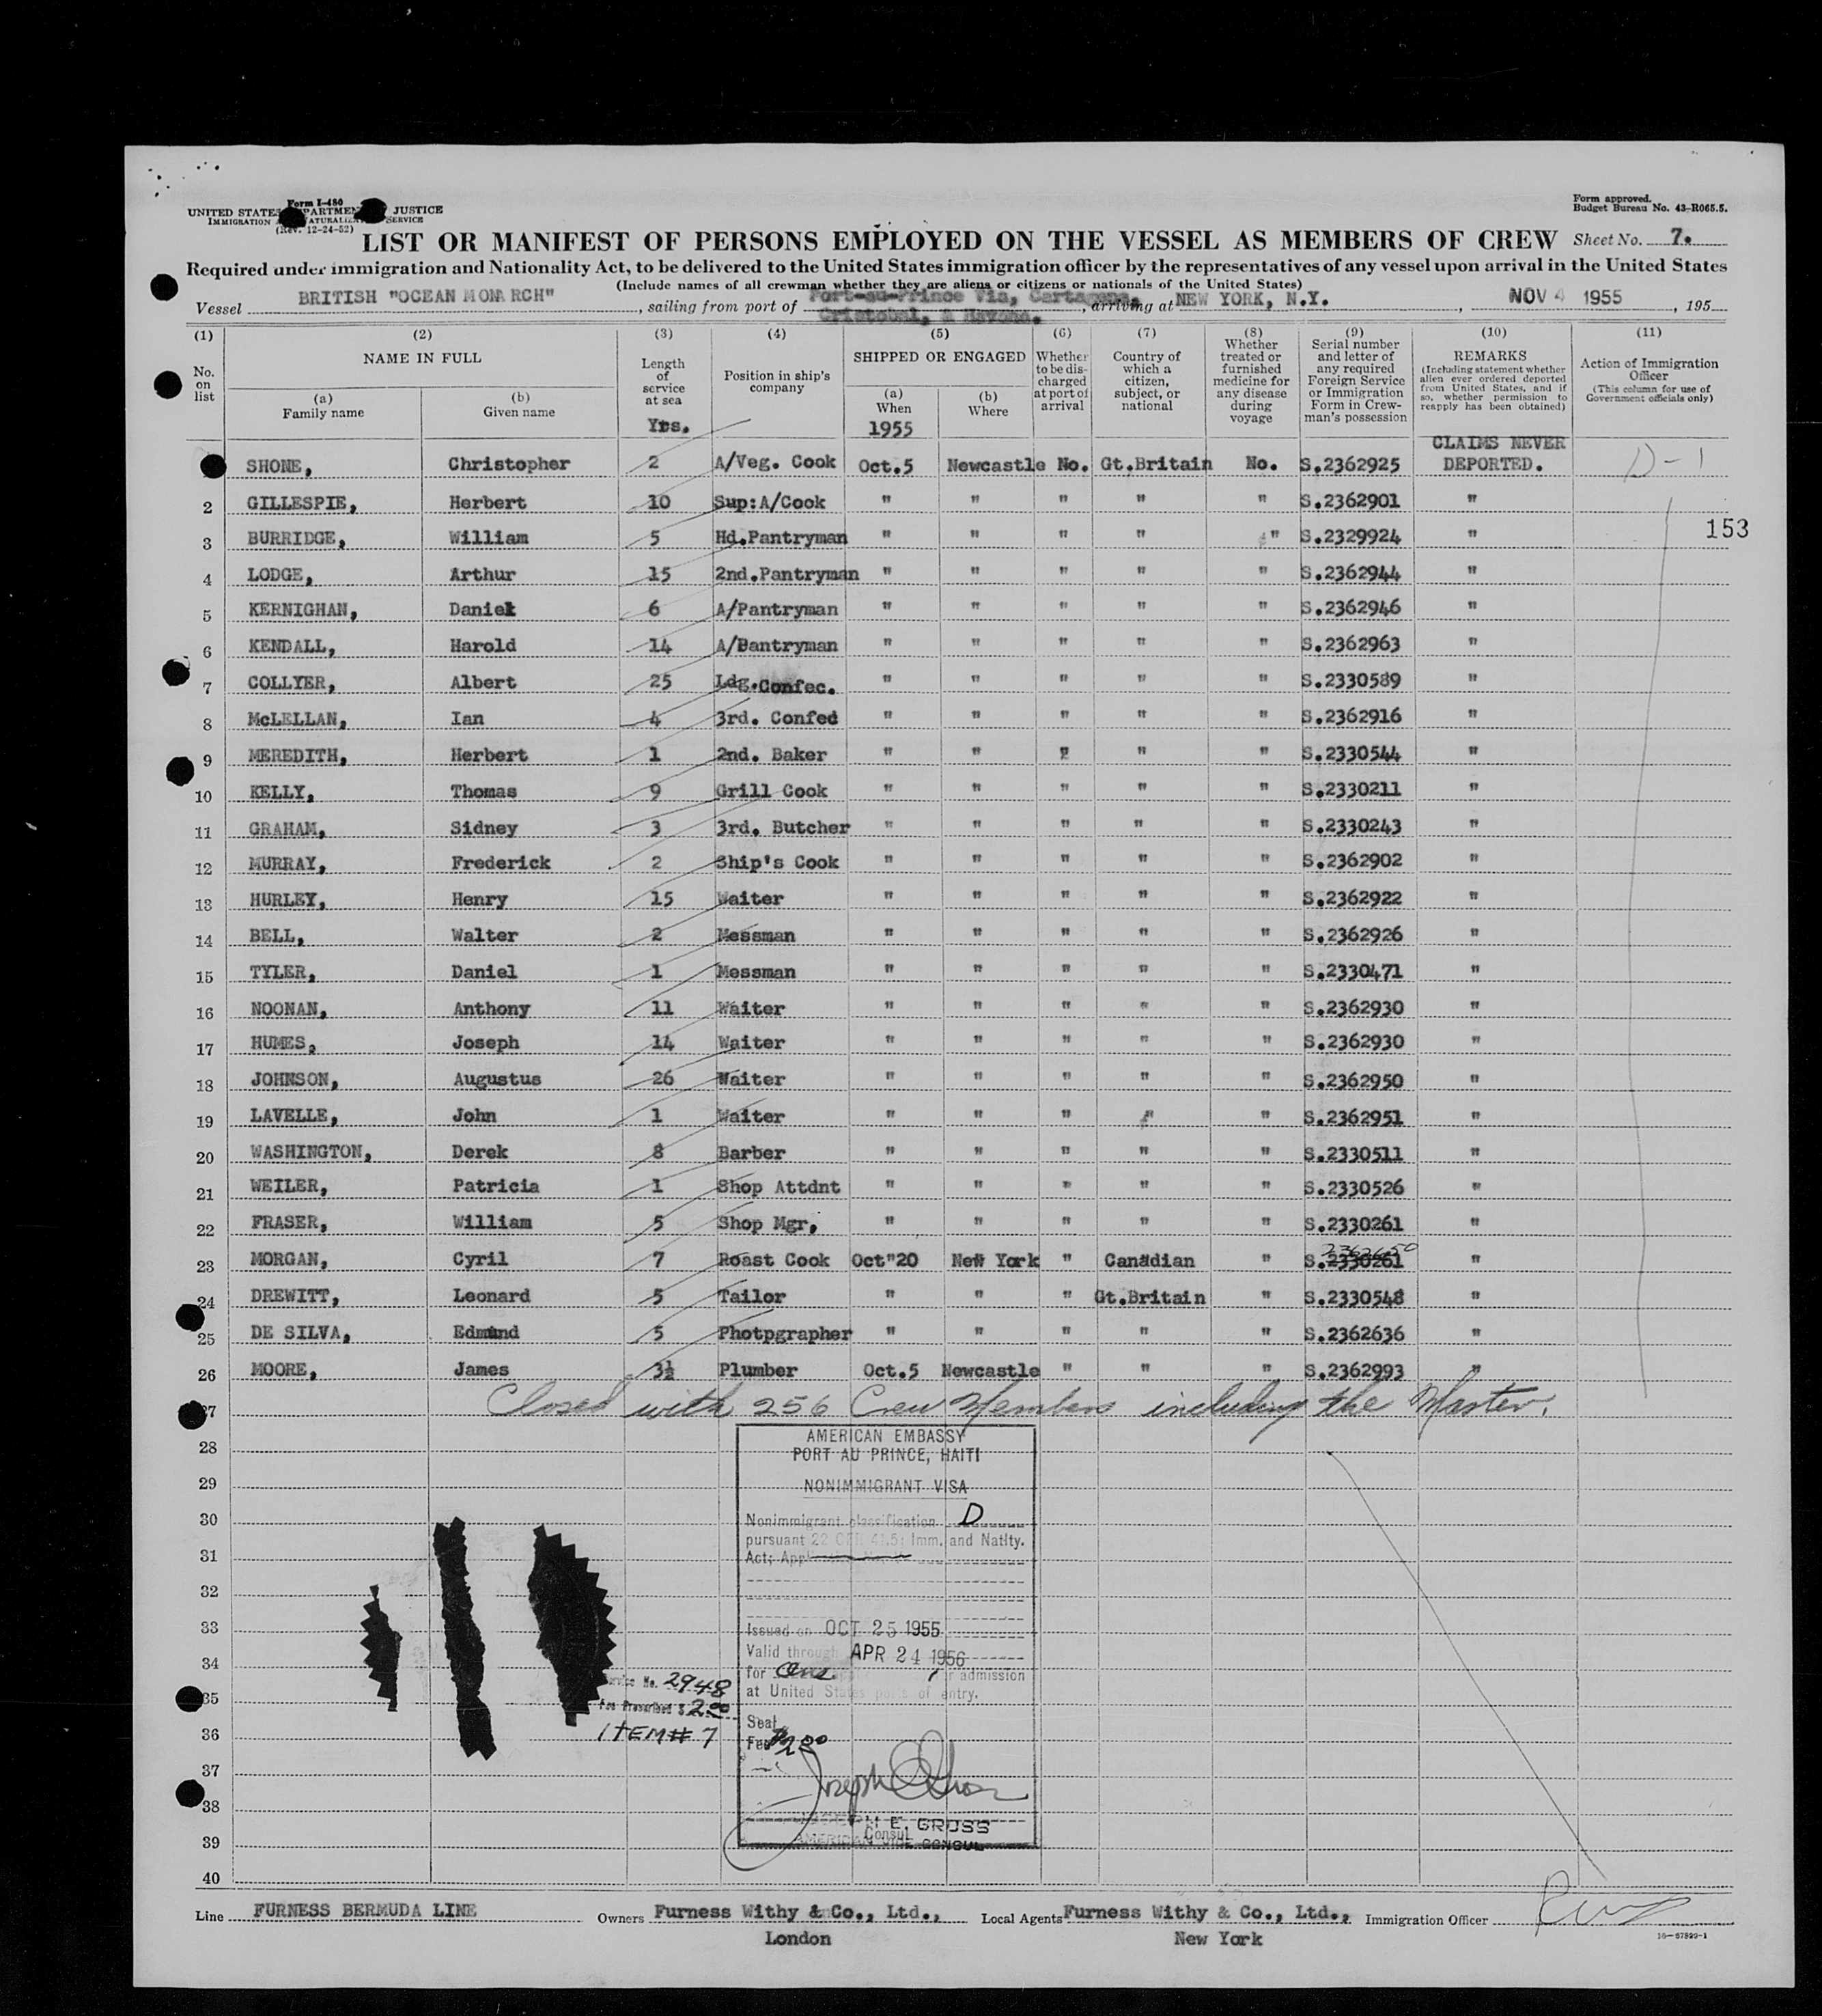 Form I-480
UNITED STATES DEPARTMENT OF JUSTICE
IMMIGRATION NATURALIZ SERVICE
(Rev. 12-24-52)
Form approved.
Budget Bureau No. 43-R065.5.
LIST OR MANIFEST OF PERSONS EMPLOYED ON THE VESSEL AS MEMBERS OF CREW Sheet No. 7.
Required under immigration and Nationality Act, to be delivered to the United States immigration officer by the representatives of any vessel upon arrival in the United States
(Include names of all crewman whether they are aliens or citizens or nationals of the United States)
Vessel BRITISH "OCEAN MONARCH", sailing from port of Port-au-Prince Via, Cartagena, Cristobal, & Havana., arriving at NEW YORK, N.Y., NOV 4 1955, 195
(1) (2) (3) (4) (5) (6) (7) (8) (9) (10) (11)
No. on list
NAME IN FULL
(a) Family name
(b) Given name
Length of service at sea
Yrs.
Position in ship's company
SHIPPED OR ENGAGED
(a) When
1955
(b) Where
Whether to be discharged at port of arrival
Country of which a citizen, subject, or national
Whether treated or furnished medicine for any disease during voyage
Serial number and letter of any required Foreign Service or Immigration Form in Crewman's possession
REMARKS
(Including statement whether alien ever ordered deported from United States, and if so, whether permission to reapply has been obtained)
Action of Immigration Officer
(This column for use of Government officials only)
SHONE, Christopher 2 A/Veg. Cook Oct.5 Newcastle No. Gt.Britain No. S.2362925 CLAIMS NEVER DEPORTED. D-1
2 GILLESPIE, Herbert 10 Sup:A/Cook " " " " " S.2362901 "
153
3 BURRIDGE, William 5 Hd.Pantryman " " " " " S.2329924 "
4 LODGE, Arthur 15 2nd.Pantryman " " " " " S.2362944 "
5 KERNIGHAN, Daniel 6 A/Pantryman " " " " " S.2362946 "
6 KENDALL, Harold 14 A/Bantryman " " " " " S.2362963 "
7 COLLYER, Albert 25 Ldg.Confec. " " " " " S.2330589 "
8 McLELLAN, Ian 4 3rd. Confed " " " " " S.2362916 "
9 MEREDITH, Herbert 1 2nd. Baker " " " " " S.2330544 "
10 KELLY, Thomas 9 Grill Cook " " " " " S.2330211 "
11 GRAHAM, Sidney 3 3rd. Butcher " " " " " S.2330243 "
12 MURRAY, Frederick 2 Ship's Cook " " " " " S.2362902 "
13 HURLEY, Henry 15 Waiter " " " " " S.2362922 "
14 BELL, Walter 2 Messman " " " " " S.2362926 "
15 TYLER, Daniel 1 Messman " " " " " S.2330471 "
16 NOONAN, Anthony 11 Waiter " " " " " S.2362930 "
17 HUMES, Joseph 14 Waiter " " " " " S.2362930 "
18 JOHNSON, Augustus 26 Waiter " " " " " S.2362950 "
19 LAVELLE, John 1 Waiter " " " " " S.2362951 "
20 WASHINGTON, Derek 8 Barber " " " " " S.2330511 "
21 WEILER, Patricia 1 Shop Attdnt " " " " " S.2330526 "
22 FRASER, William 5 Shop Mgr, " " " " " S.2330261 "
23 MORGAN, Cyril 7 Roast Cook Oct"20 New York " Canadian " S.2330261 2362650 "
24 DREWITT, Leonard 5 Tailor " " " Gt.Britain " S.2330548 "
25 DE SILVA, Edmund 5 Photpgrapher " " " " " S.2362636 "
26 MOORE, James 3½ Plumber Oct.5 Newcastle " " " S.2362993 "
27 Closed with 256 Crew Members including the Master.
28
29
30
31
32
33
34
35
36
37
38
39
40
AMERICAN EMBASSY
PORT AU PRINCE, HAITI
NONIMMIGRANT VISA
Nonimmigrant classification D
pursuant 22 CFR 41.5; Imm. and Natlty.
Act; Appl
Issued on OCT 25 1955
Valid through APR 24 1956
for One admission
at United States port of entry.
Service No. 2948
Fee Prescribed $ 2.00
ITEM# 7
Seal
Fee
JOSEPH E. GROSS
Consul
AMERICAN VICE CONSUL
Line FURNESS BERMUDA LINE Owners Furness Withy & Co., Ltd., London Local Agents Furness Withy & Co., Ltd., New York Immigration Officer
16-67899-1